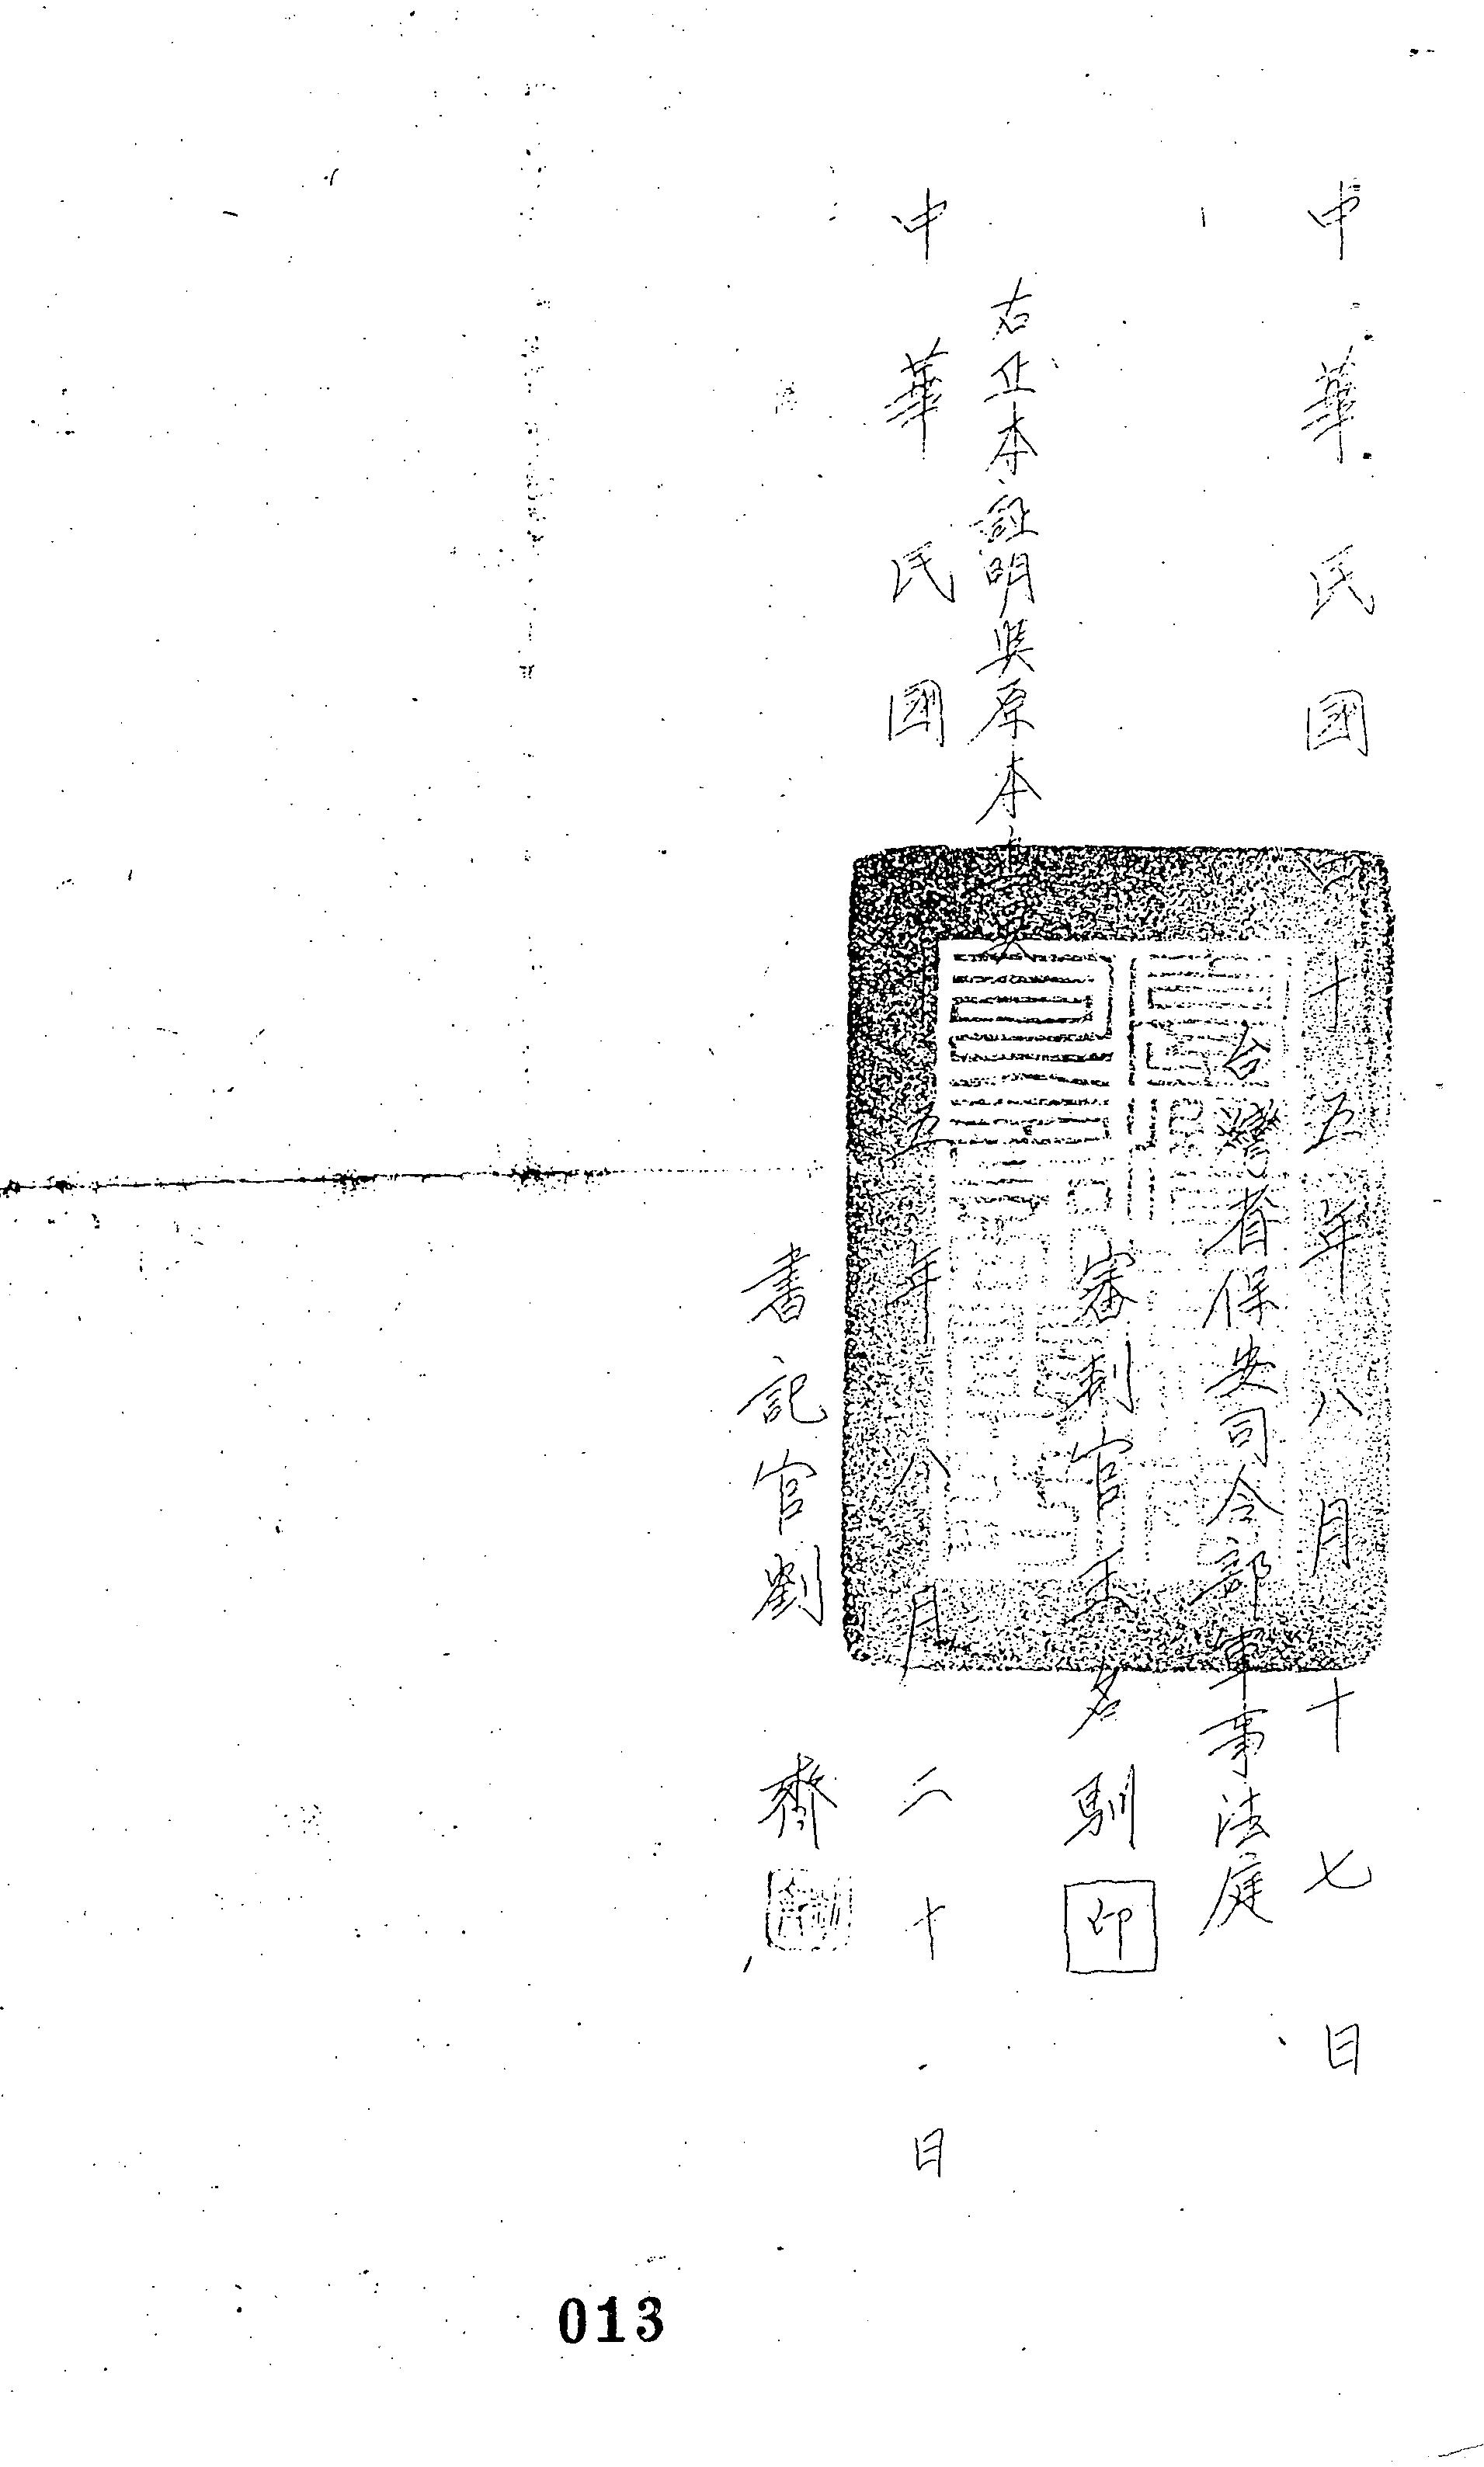 中華民國四十五年八月十七日
台灣省保安司令部軍事法庭
審判官王名馴 印
右正本証明與原本
中華民國 十五年八月二十日
書記官劉 齊
013